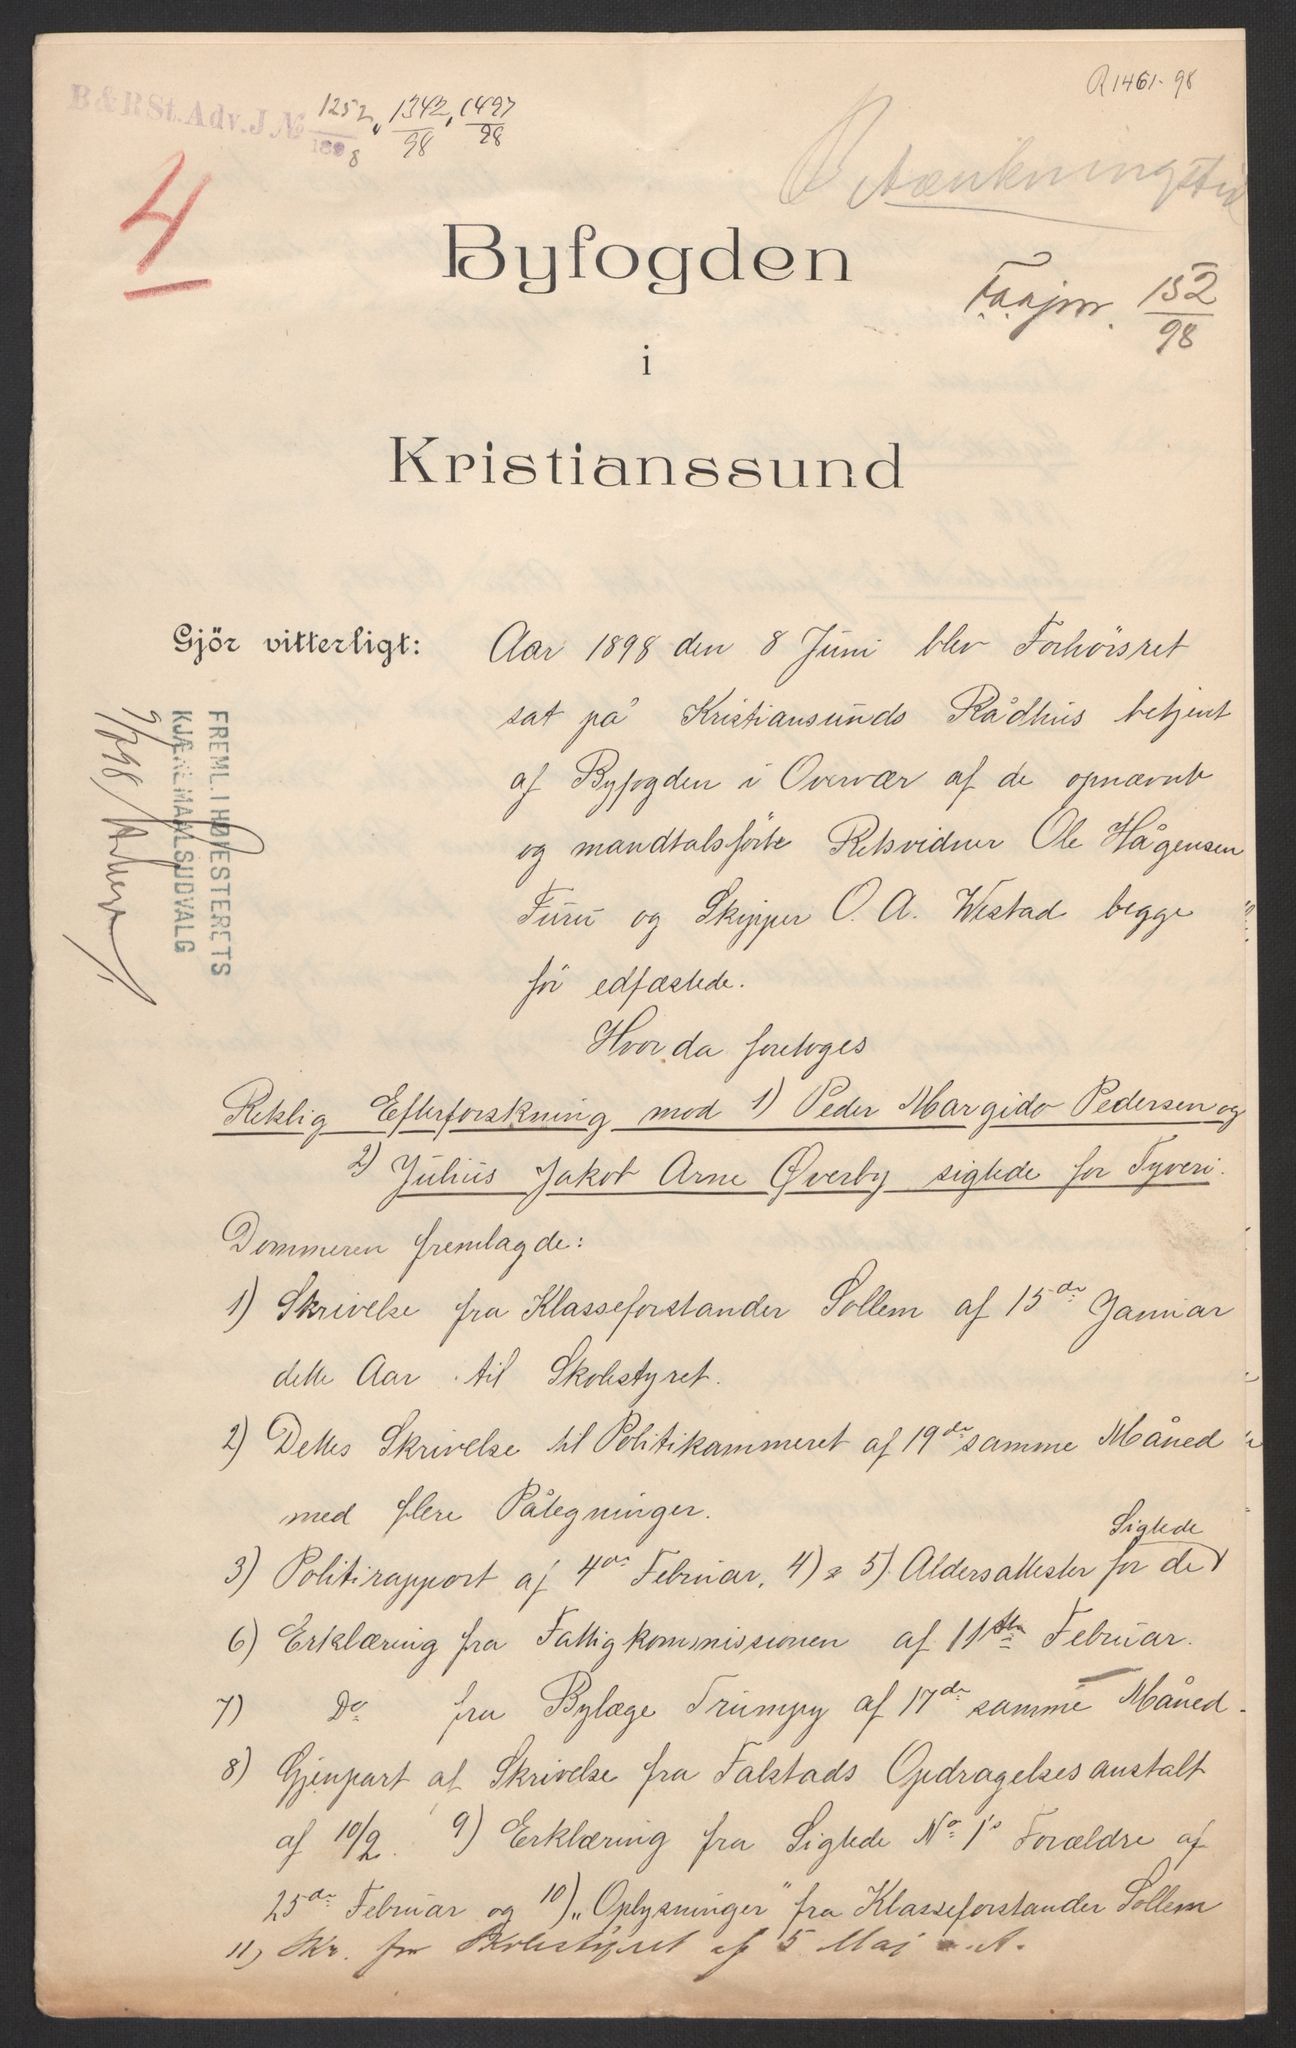 R 1461-98
B & R St. Adv. J № 1252/1898, 1342/98, 1497/98
4
Betænkningstid
F.a.a.jnr. 152/98
Byfogden
i
Kristianssund
Gjör vitterligt: Aar 1898 den 8 Juni blev Forhörsret
sat på Kristiansunds Rådhus betjent
af Byfogden i Overvær af de opnævnte
og mandtalsförte Retsvidner Ole Hågensen
Furu og Skipper O. A. Westad begge
för edfæstede.
Hvor da foretoges
FREML. I HØIESTERETS
KJÆREMAALSUDVALG
9/7 98
Retslig Efterforskning mod 1) Peder Margido Pedersen og
2) Julius Jakob Arne Øverby sigtede for Tyveri.
Dommeren fremlagde:
1) Skrivelse fra Klasseforstander Sollem af 15de Januar
dette Aar til Skolestyret.
2) Dettes Skrivelse til Politikammeret af 19de samme Måned
med flere Påtegninger.
Sigtede
3) Politirapport af 4de Februar, 4) & 5) Aldersattester for de
6) Erklæring fra Fattigkommissionen af 11te Februar.
7) Do fra Bylæge Trumpy af 17de samme Måned.
8) Gjenpart af Skrivelse fra Falstads Opdragelsesanstalt
af 10/2. 9) Erklæring fra Sigtede No 1's Forældre af
25de Februar og 10) „Oplysninger" fra Klasseforstander Sollem
11) Skr. fra Skolestyret af 5 Maj d. A.